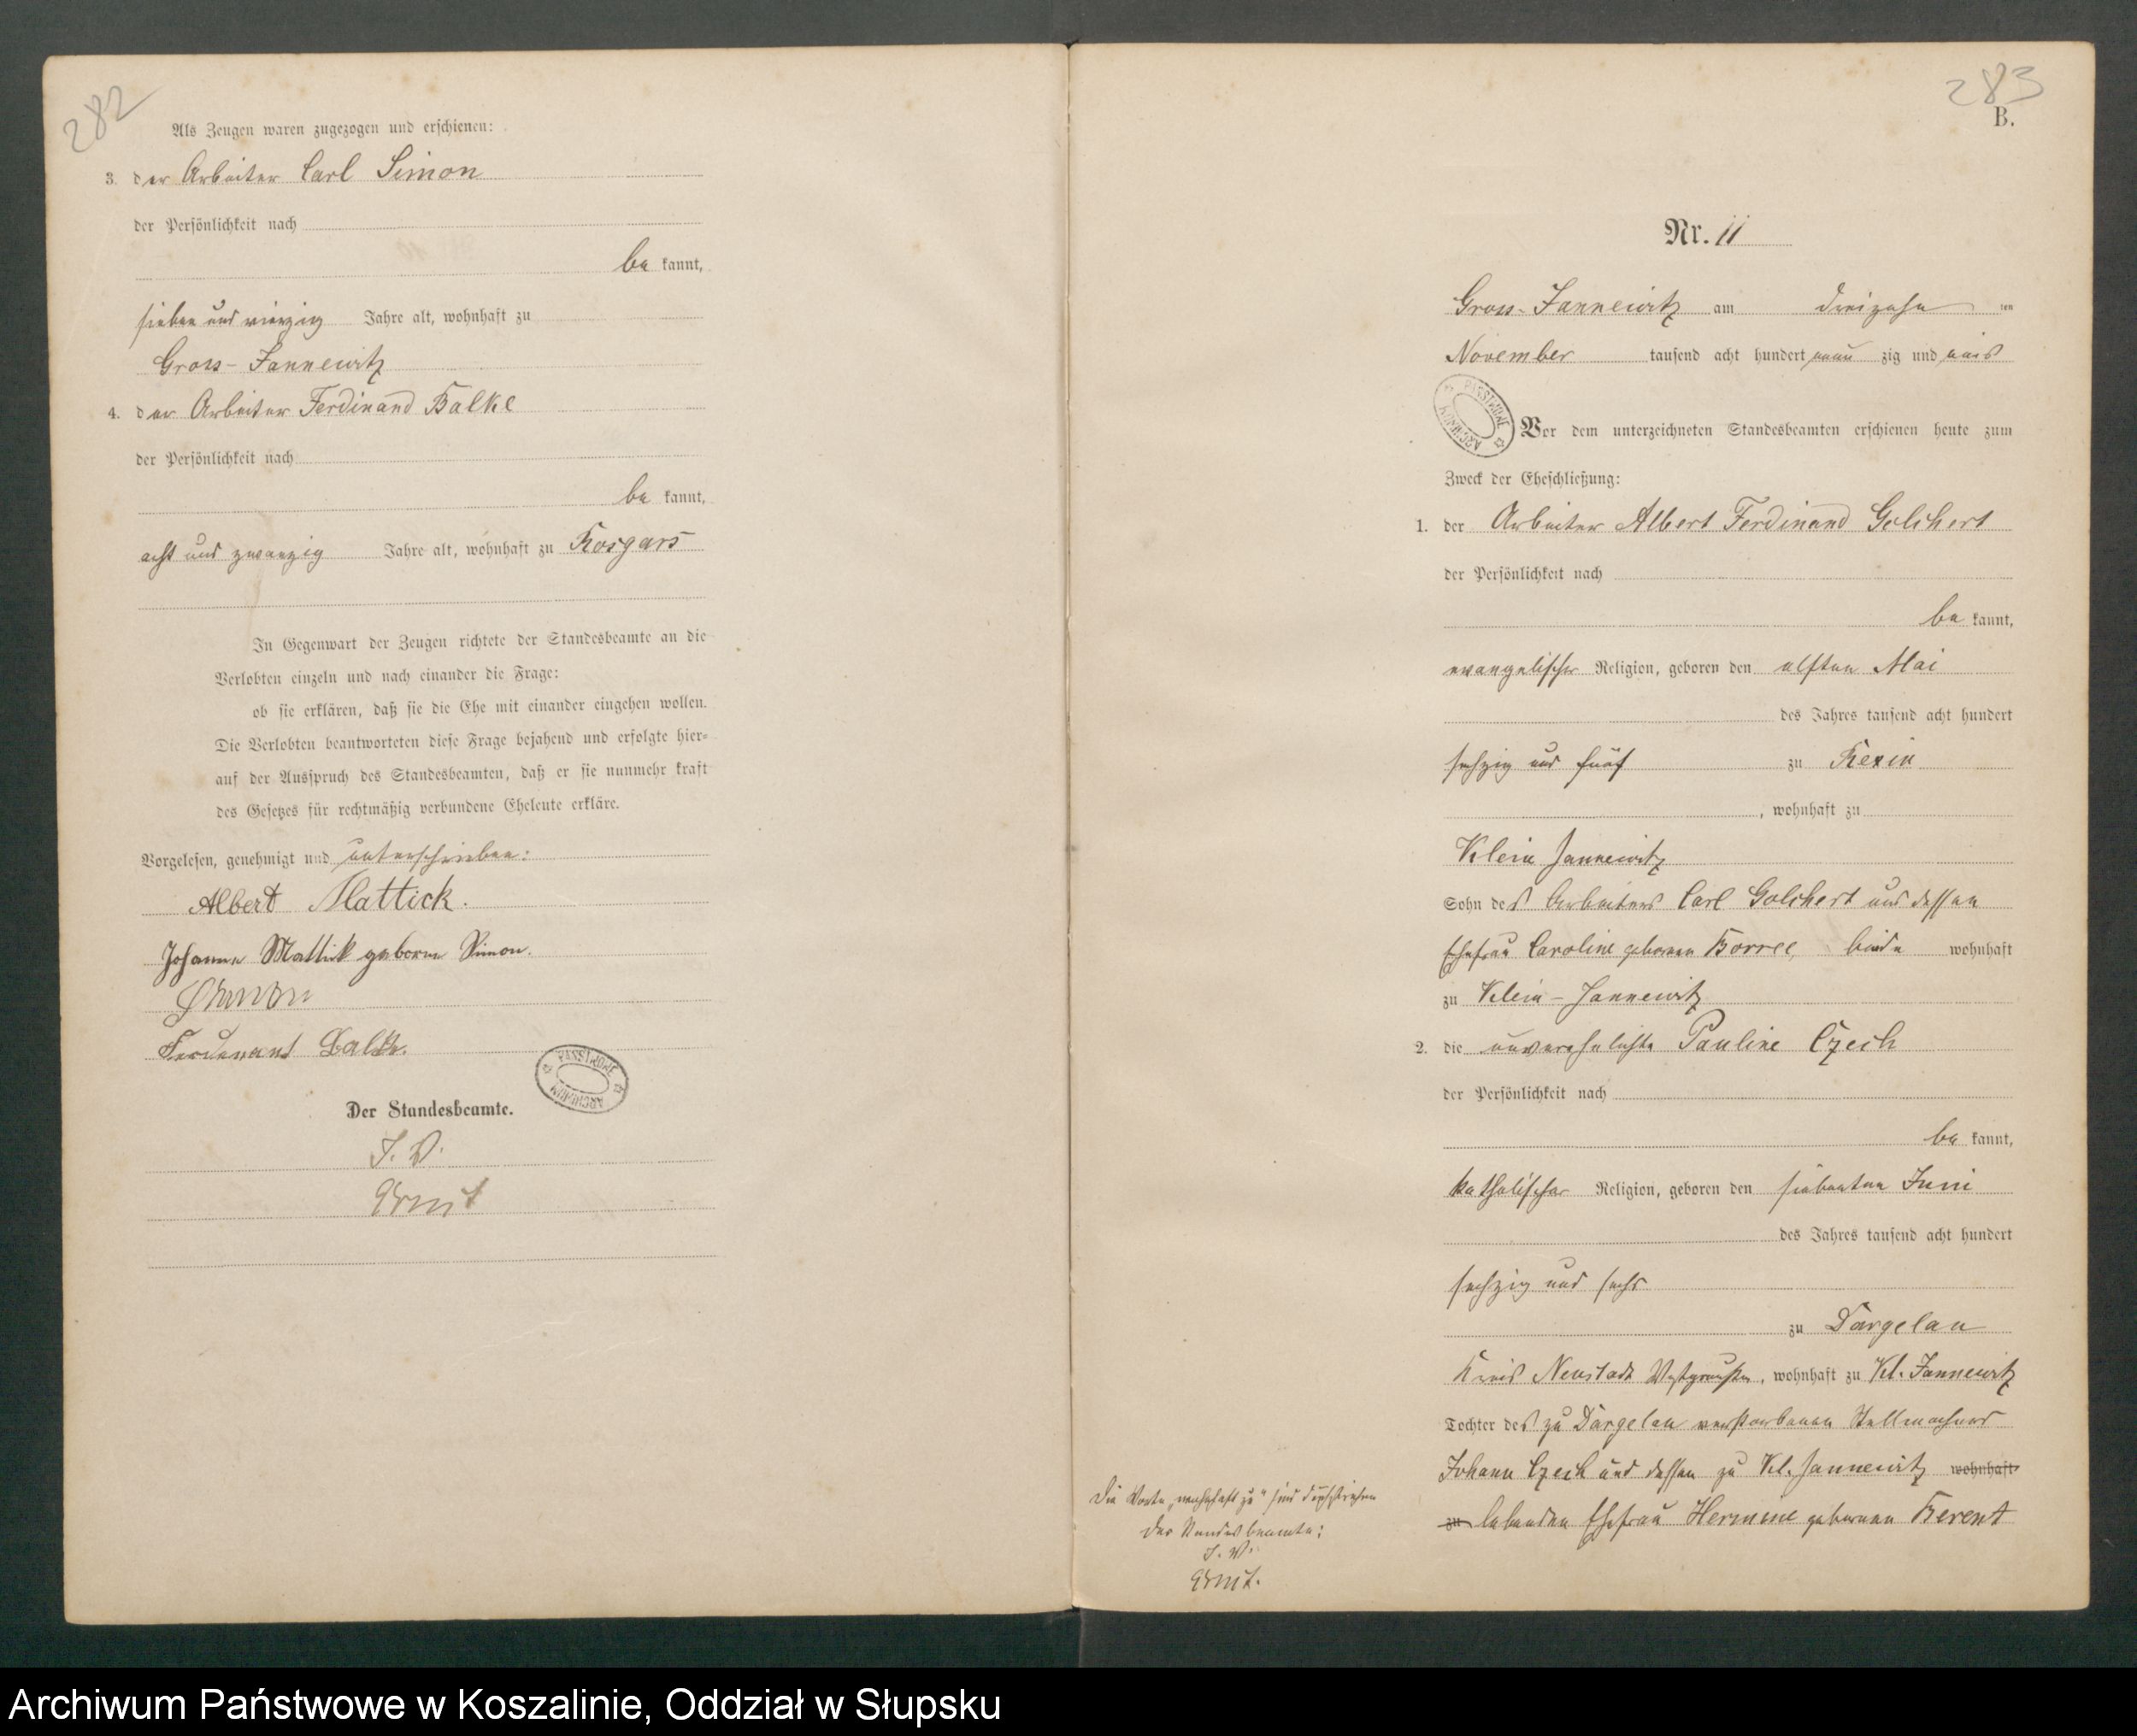 282
Als Zeugen waren zugezogen und erschienen:
3. der Arbeiter Carl Simon
der Persönlichkeit nach
be kannt,
sieben und vierzig Jahre alt, wohnhaft zu
Gross-Jannewitz
4. der Arbeiter Ferdinand Balke
der Persönlichkeit nach
be kannt,
acht und zwanzig Jahre alt, wohnhaft zu Rosgars
In Gegenwart der Zeugen richtete der Standesbeamte an die
Verlobten einzeln und nach einander die Frage:
ob sie erklären, daß sie die Ehe mit einander eingehen wollen.
Die Verlobten beantworteten diese Frage bejahend und erfolgte hier-
auf der Ausspruch des Standesbeamten, daß er sie nunmehr kraft
des Gesetzes für rechtmäßig verbundene Eheleute erkläre.
Vorgelesen, genehmigt und unterschrieben:
Albert Mattick.
Johanna Mattick geborne Simon.
Simon
Ferdinant Balke.
ARCHIWUM PAŃSTWOWE
Der Standesbeamte.
J. V.
283
B.
Nr. 11
Gross-Jannewitz am dreizehn ten
November tausend acht hundert neun zig und eins
ARCHIWUM PAŃSTWOWE
Vor dem unterzeichneten Standesbeamten erschienen heute zum
Zweck der Eheschließung:
1. der Arbeiter Albert Ferdinand Golchert
der Persönlichkeit nach
be kannt,
evangelischer Religion, geboren den elften Mai
des Jahres tausend acht hundert
sechzig und fünf zu Rexin
, wohnhaft zu
Klein Jannewitz
Sohn des Arbeiters Carl Golchert und dessen
Ehefrau Caroline geborenen Borree, beide wohnhaft
zu Klein-Jannewitz
2. die unverehelichte Pauline Czech
der Persönlichkeit nach
be kannt,
katholischer Religion, geboren den siebenten Juni
des Jahres tausend acht hundert
sechzig und sechs
zu Dargelau
Kreis Neustadt Westpreußen, wohnhaft zu Kl. Jannewitz
Tochter des zu Dargelau verstorbenen Stellmachers
Johann Czech und dessen zu Kl. Jannewitz wohnhaft
zu lebenden Ehefrau Hermine geborenen Berent
Die Worte „wohnhaft zu“ sind durchstrichen
Der Standesbeamte:
J. V.
Archiwum Państwowe w Koszalinie, Oddział w Słupsku